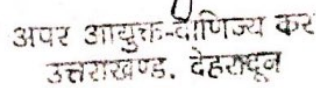 अपर आयुक्त-वाणिज्य कर
उत्तराखण्ड, देहरादून